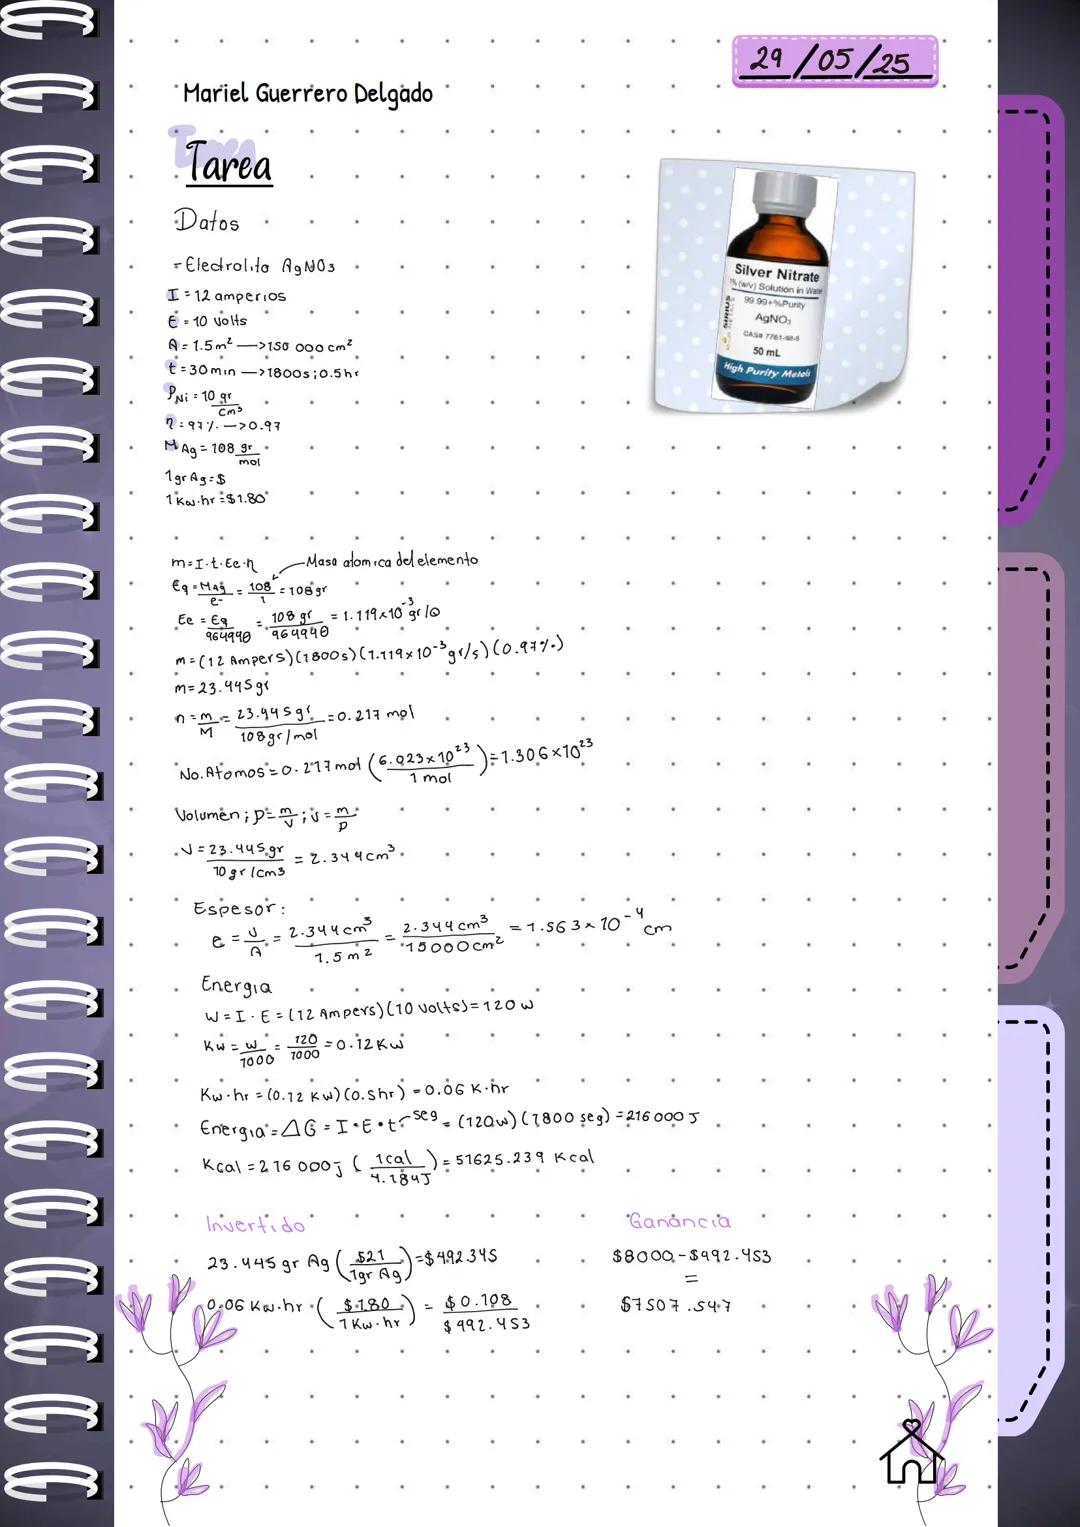 29/05/25
Mariel Guerrero Delgado
Tarea
Datos
= Electrolito AgNO3
I = 12 amperios
E = 10 volts
A = 1.5m² —>150 000 cm²
t = 30min —>1800s;0.5hr
PNi = 10 gr/cm³
η = 97%. —>0.97
M Ag = 108 gr/mol
1gr Ag = $
1 Kw·hr = $1.80
Silver Nitrate
1% (w/v) Solution in Water
99.99+%Purity
AgNO3
CAS# 7761-88-8
50 mL
High Purity Metals
m = I·t·Ee·η Masa atomica del elemento
Eq = MAg/e- = 108/1 = 108gr
Ee = Eq/96499θ = 108 gr/96494θ = 1.119x10⁻³ gr/Q
m = (12 Ampers)(1800s)(1.119x10⁻³gr/s)(0.97%)
m = 23.445gr
n = m/M = 23.445gr/108gr/mol = 0.217 mol
No. Atomos = 0.217 mol (6.023x10²³/1 mol) = 1.306x10²³
Volumen; P = m/V; v = m/P
V = 23.445gr/10gr/cm3 = 2.344cm³
Espesor:
e = V/A = 2.344cm³/1.5m² = 2.344cm³/15000cm² = 1.563x10⁻⁴ cm
Energia
W = I·E = (12 Ampers)(10 Volts) = 120 w
Kw = w/1000 = 120/1000 = 0.12 Kw
Kw·hr = (0.12 Kw)(0.5hr) = 0.06 K·hr
Energia = ΔG = I·E·t seg = (120w)(1800 seg) = 216 000 J
Kcal = 216 000j (1cal/4.184J) = 51625.239 Kcal
Invertido
23.445 gr Ag ($21/1gr Ag) = $492.345
0.06 Kw·hr ($1.80/1 Kw·hr) = $0.108
$492.453
Ganancia
$8000 - $492.453
=
$7507.547